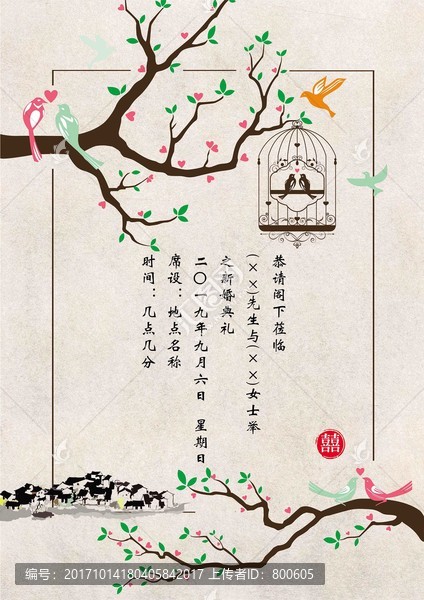 恭请阁下莅临
(××)先生与(××)女士举
之新婚典礼
二〇一九年九月六日 星期日
席设：地点名称
时间：几点几分
囍
编号：20171014180405842017 上传者ID：800605